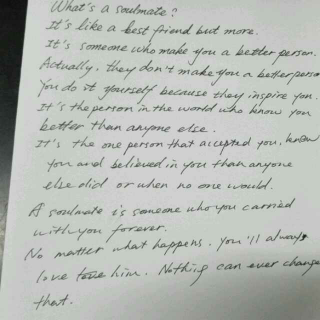 What's a soulmate?
It's like a best friend but more.
It's someone who make you a better person.
Actually, they don't make you a better person
You do it yourself because they inspire you.
It's the person in the world who know you
better than anyone else.
It's the one person that accepted you, know
you and believed in you than anyone
else did or when no one would.
A soulmate is someone who you carried
with you forever.
No matter what happens. You'll always
love him. Nothing can ever change
that.